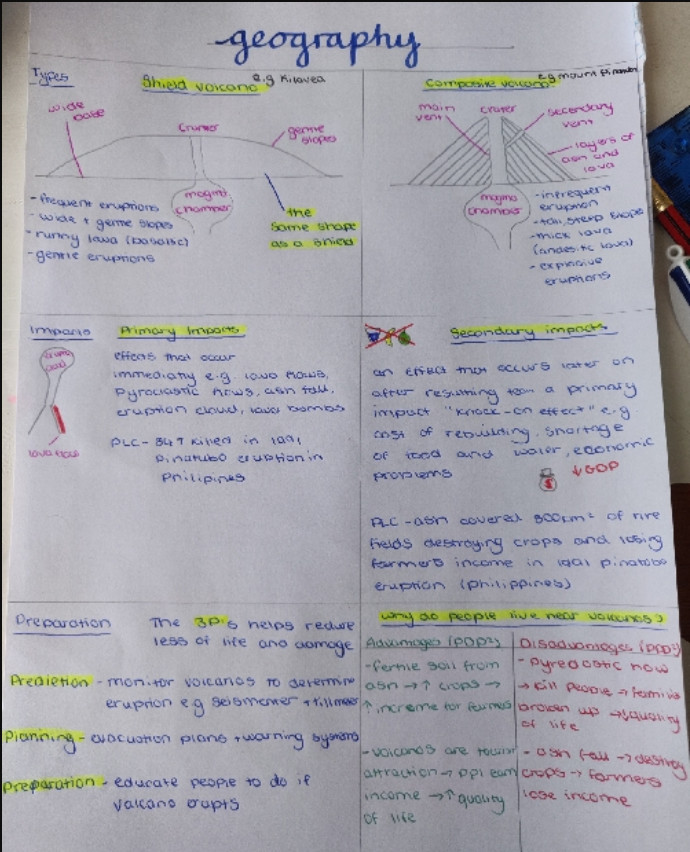 geography
Types
Shield volcano
e.g Kilavea
wide
base
crater
gentle
slopes
magma
chamber
- frequent eruptions
- wide + gentle slopes
- runny lava (basaltic)
- gentle eruptions
the
same shape
as a shield
Composite volcano
e.g mount Pinatubo
main
vent
crater
secondary
vent
layers of
ash and
lava
magma
chamber
- infrequent
eruption
- tall, steep slope
- thick lava
(andesitic lava)
- explosive
eruptions
Impacts
Primary Impacts
effects that occur
immediatly e.g. lava flows,
Pyroclastic flows, ash fall,
eruption cloud, lava bombs
PLC - 847 killed in 1991
Pinatubo eruption in
Philipines
lava flow
Secondary impacts
an effect that occurs later on
after resulting from a primary
impact "knock-on effect" e.g.
cost of rebuilding, shortage
of food and water, economic
problems
↓GDP
PLC - ash covered 800km² of rice
fields destroying crops and losing
farmers income in 1991 pinatubo
eruption (philippines)
Preparation
The 3P's helps reduce
less of life and damage
Prediction - monitor volcanos to determine
eruption e.g seismometer + tiltmeter
Planning - evacuation plans + warning systems
Preparation - educate people to do if
valcano erupts
why do people live near volcanos?
Advantages (PDP²)
- fertile soil from
ash → ↑ crops →
↑ increme for farmers
- volcanos are tourist
attraction → ppl earn
income → ↑ quality
of life
Disadvantages (PDP²)
- pyroclastic flow
→ kill people → families
broken up → ↓quality
of life
- ash fall → destroy
crops → farmers
lose income